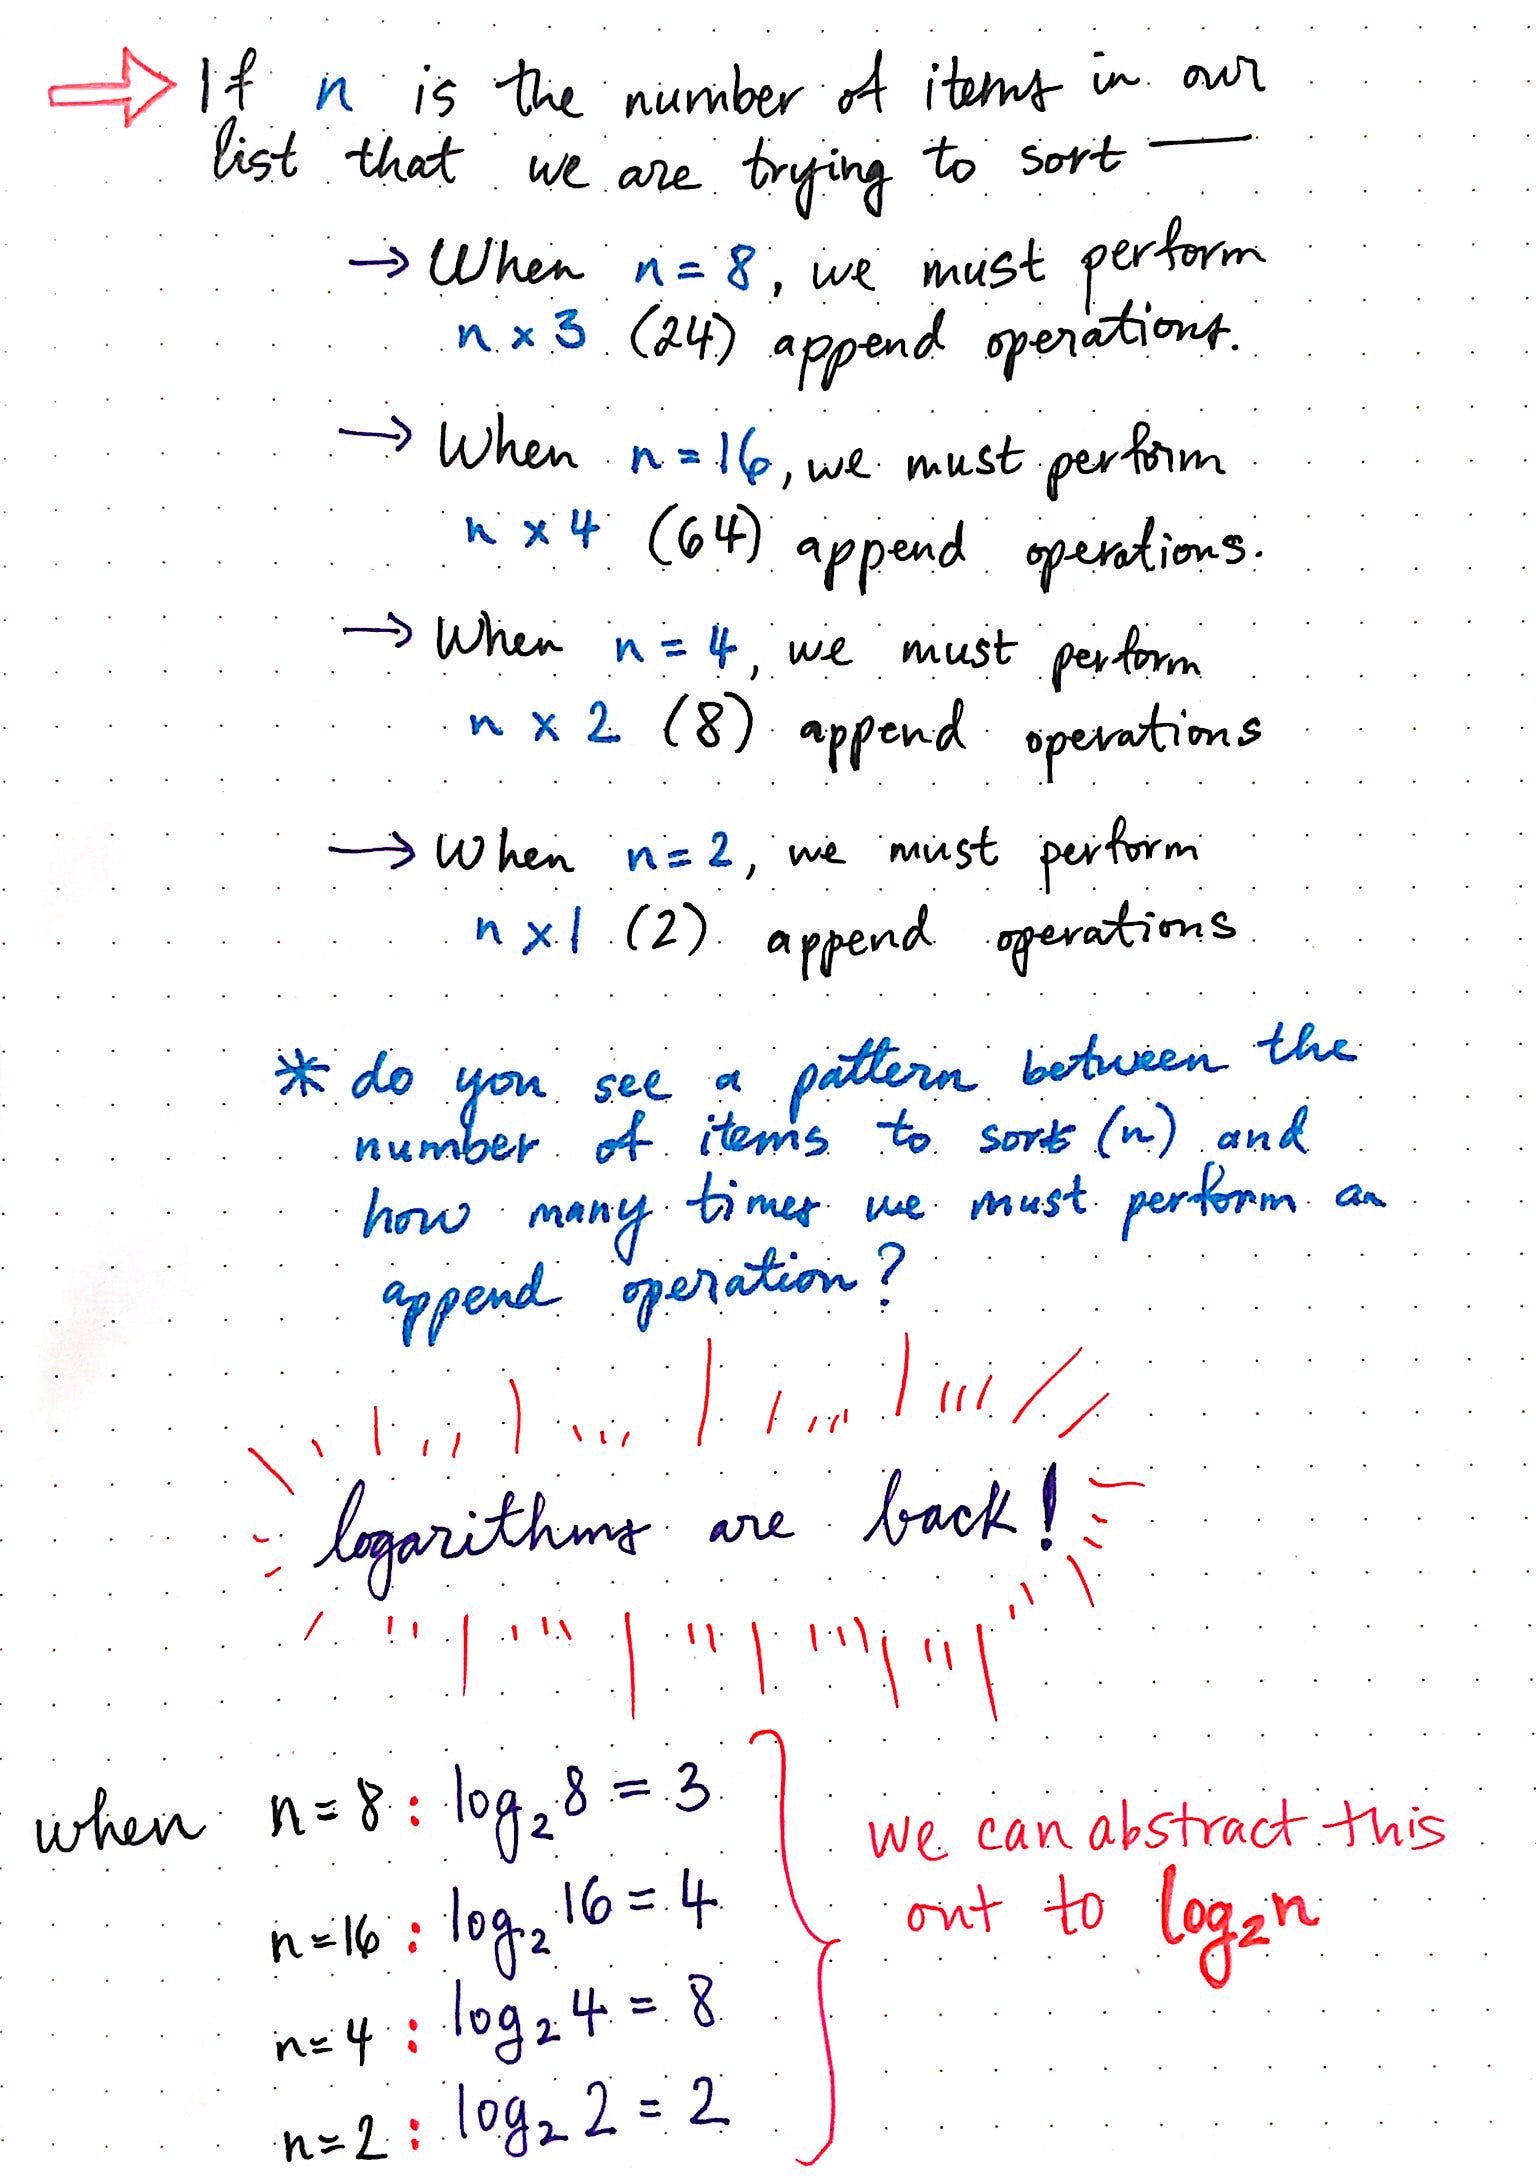 If n is the number of items in our
list that we are trying to sort —
→ When n = 8, we must perform
n x 3 (24) append operations.
→ When n = 16, we must perform
n x 4 (64) append operations.
→ When n = 4, we must perform
n x 2 (8) append operations
→ When n = 2, we must perform
n x 1 (2) append operations
* do you see a pattern between the
number of items to sort (n) and
how many times we must perform an
append operation?
logarithms are back!
when n = 8 : log₂ 8 = 3
n = 16 : log₂ 16 = 4
n = 4 : log₂ 4 = 8
n = 2 : log₂ 2 = 2
we can abstract this
out to log₂n